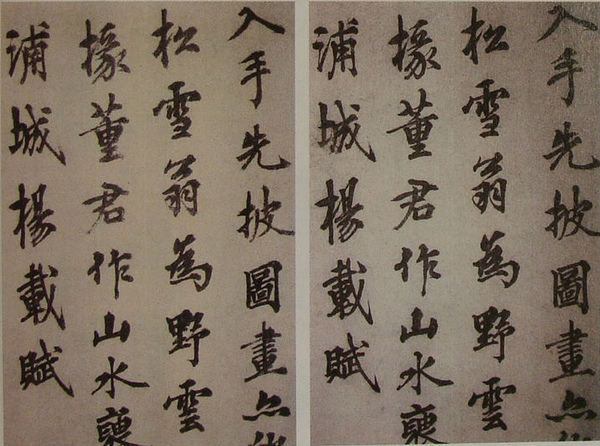 入手先披圖畫
松雪翁為野雲
椽董君作山水
浦城楊載賦
入手先披圖畫
松雪翁為野雲
椽董君作山水
浦城楊載賦